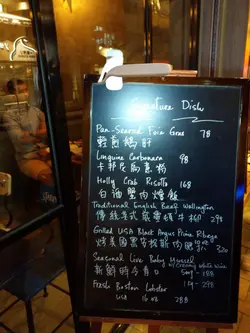 Signature Dish
Pan-Seared Foie Gras 78
輕煎鵝肝
Linguine Carbonara 98
卡邦尼意粉
Holly Crab Risotto 168
白酒蟹肉燴飯
Traditional English Beef Wellington
傳統英式威靈頓牛柳 298
Grilled USA Black Angus Prime Ribeye
10 oz 320
Seasonal Live Baby Mussel
新鮮時令青口
w/ Creamy white wine
188
Fresh Boston Lobster 298
USA 16 oz 288